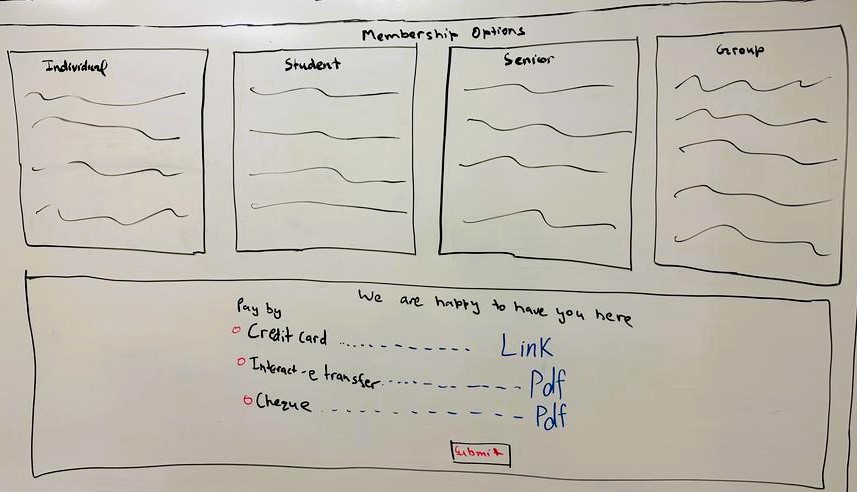 Membership Options
Individual
Student
Senior
Group
We are happy to have you here
Pay by
Credit card ............ Link
Interact-e transfer ............ Pdf
Cheque ............ Pdf
Submit